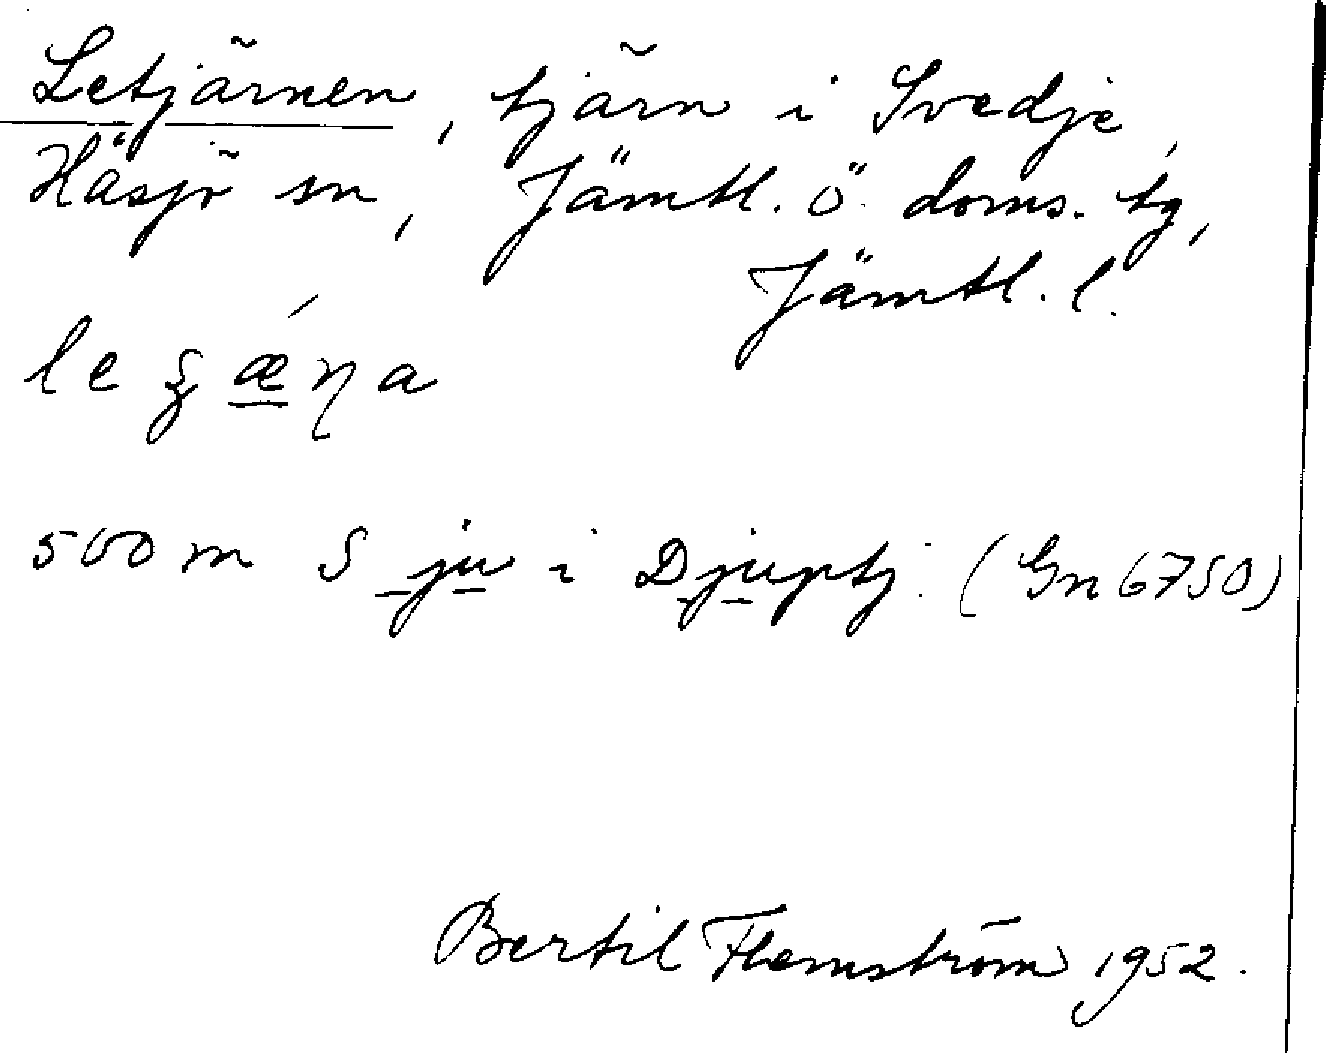 Letjärnen, tjärn i Svedje,
Häsjö sn, Jämtl. ö. doms. tg,
Jämtl. l.
500 m S ju i Djuptj. (Gn 6750)
Bertil Flemström 1952.